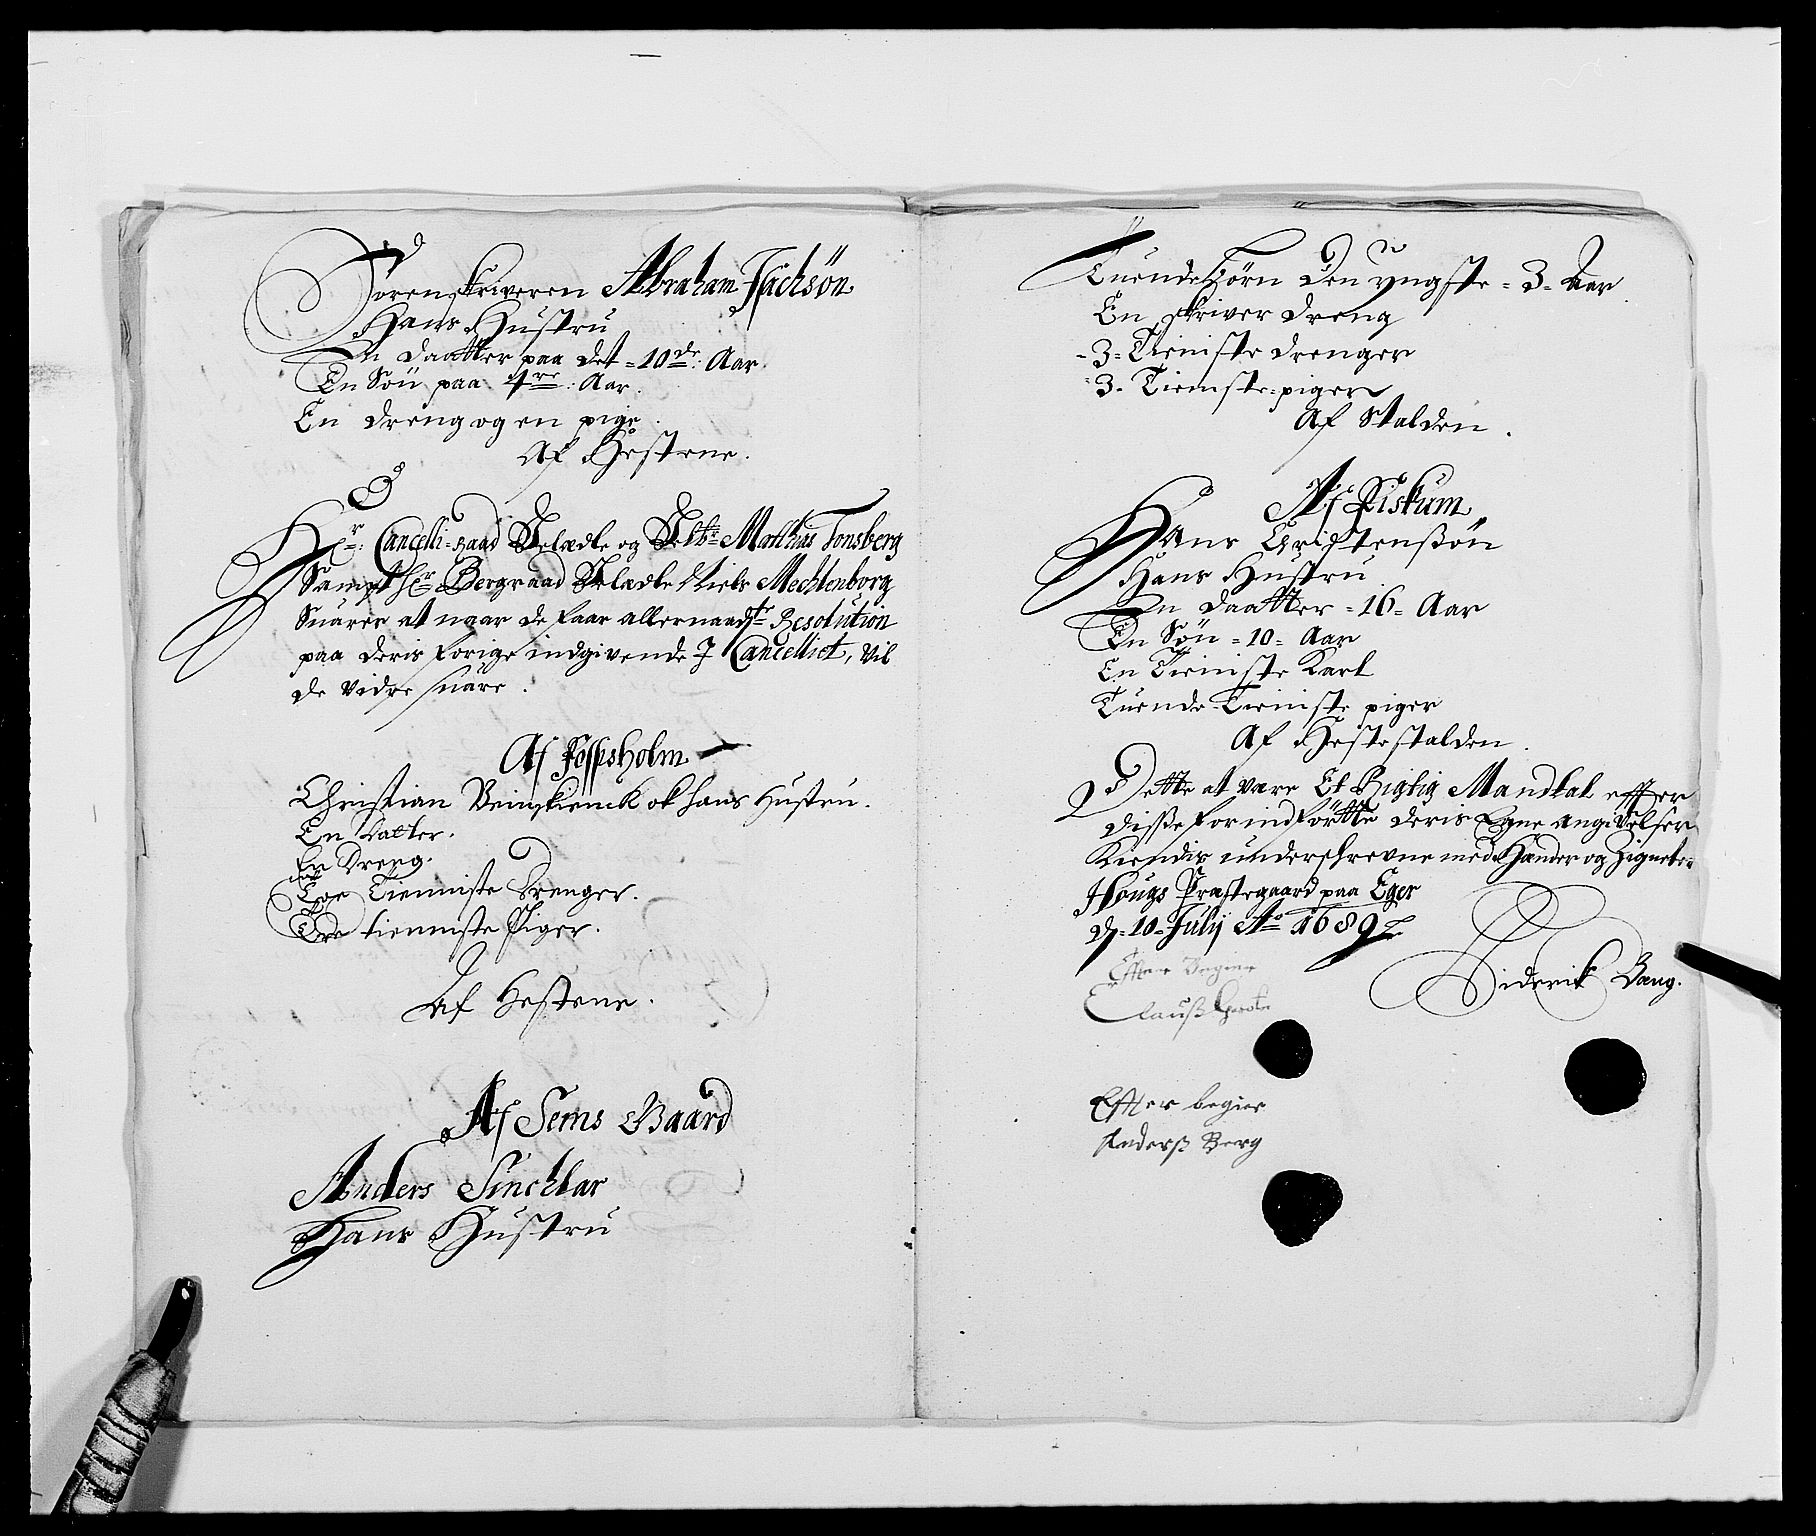 Sorenskriveren Abraham Jachsøn
Hans Hustru
En daatter paa det = 10de: Aar.
En Søn paa 4re: Aar.
En dreng og en pige.
Af Hestene.
Hr: Cancelli-Raad Velædle og Velbr Matthias Tonsberg
Sampt Hr Bergraad Velædle Niels Mechlenborg
Suarer at naar de faar allernaadste Resolution
paa deris forige indgivende J Cancelliet, vil
de vidre suare.
Af Fossesholm
Christian Weinskienck ok hans Hustru.
En Datter.
En Dreng.
Toe Tienniste Drenger.
Tre tienniste Piger.
Af Hestene.
Af Sems Gaard
Anders Sinchlar
Hans Hustru
Tuende Børn den yngste = 3 = Aar
En skriver dreng
= 3 = Tieniste drenger
= 3 = Tieniste piger
Af Stalden.
Af Fiskum
Hans Christensøn
Hans Hustru
En daatter = 16 = Aar
En Søn = 10 = Aar
En Tieniste Karl
Tuende Tieniste piger
Af Hestestalden.
Dette at være Et Rigtig Mandtal effter
disse forindførtte deris Egne angivelser
Kiendis underschrevne med Hænder og Zigneter
Hougs Præstegaard paa Eger
d. 10 Julij Ao 1689
Effter Begier
Clauss
Diderik Bang.
Effter begier
Anderss Berg